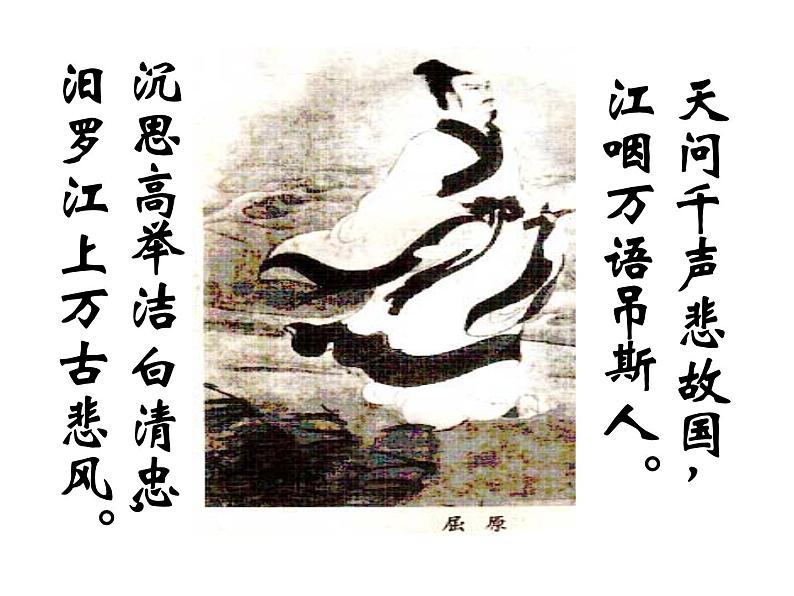 天问千声悲故国，
江咽万语吊斯人。
沉思高举洁白清忠
汨罗江上万古悲风。
屈 原